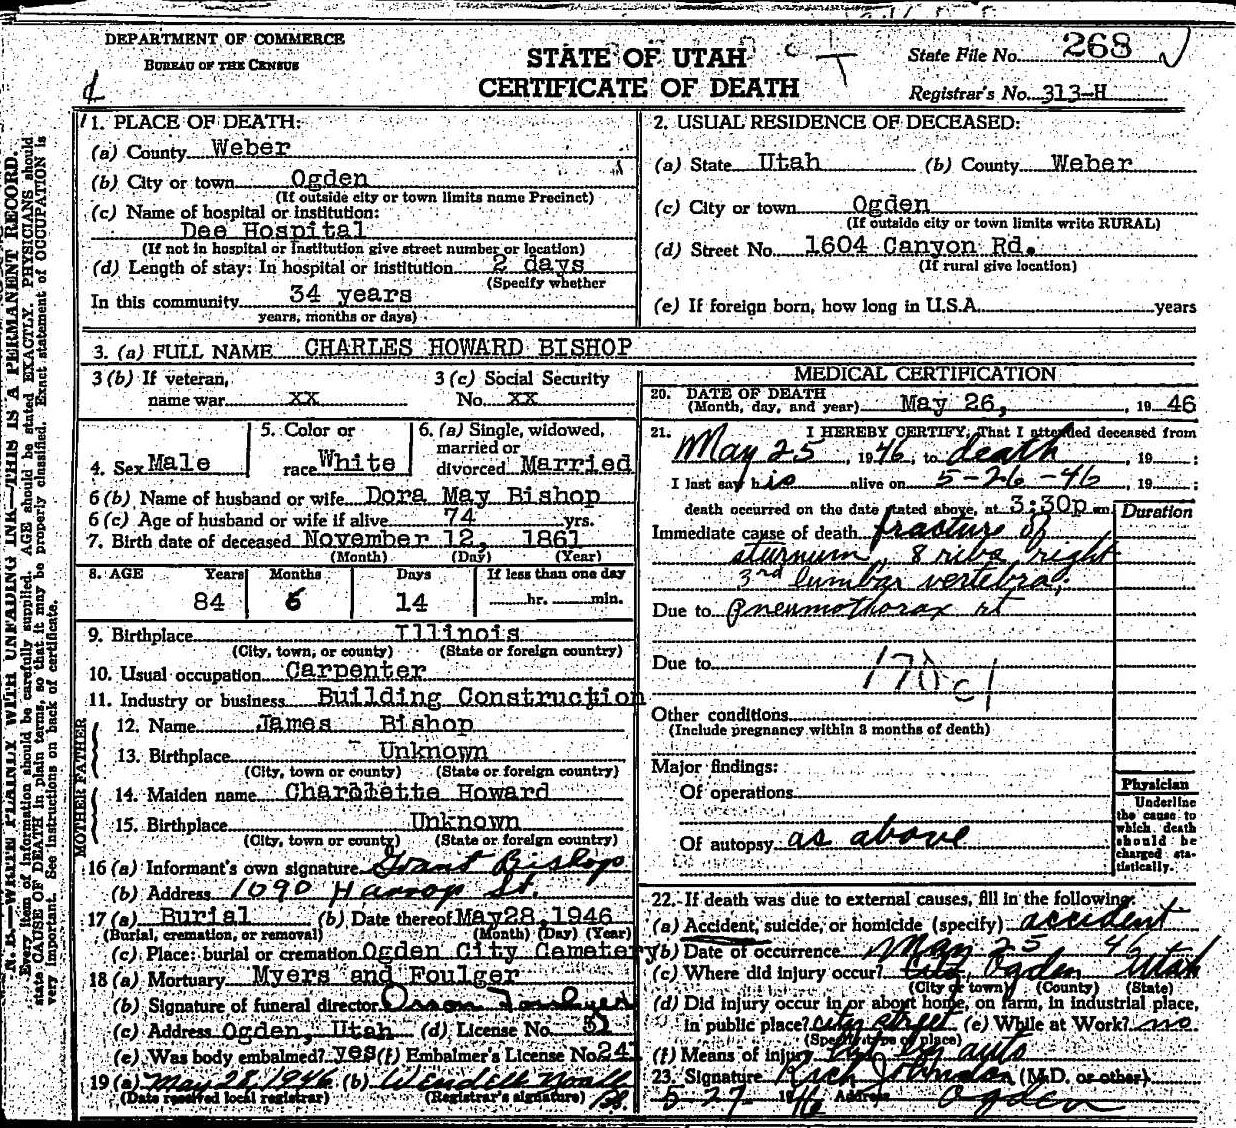 DEPARTMENT OF COMMERCE
BUREAU OF THE CENSUS
STATE OF UTAH
CERTIFICATE OF DEATH
State File No. 268
Registrar's No. 313-H
N. B.—WRITE PLAINLY WITH UNFADING INK—THIS IS A PERMANENT RECORD.
Every item of information should be carefully supplied. AGE should be stated EXACTLY. PHYSICIANS should
state CAUSE OF DEATH in plain terms, so that it may be properly classified. Exact statement of OCCUPATION is
very important. See instructions on back of certificate.
1. PLACE OF DEATH:
(a) County Weber
(b) City or town Ogden
(If outside city or town limits name Precinct)
(c) Name of hospital or institution:
Dee Hospital
(If not in hospital or institution give street number or location)
(d) Length of stay: In hospital or institution 2 days
(Specify whether
In this community 34 years
years, months or days)
2. USUAL RESIDENCE OF DECEASED:
(a) State Utah (b) County Weber
(c) City or town Ogden
(If outside city or town limits write RURAL)
(d) Street No. 1604 Canyon Rd.
(If rural give location)
(e) If foreign born, how long in U.S.A. years
3. (a) FULL NAME CHARLES HOWARD BISHOP
3 (b) If veteran, name war xx
3 (c) Social Security No. xx
4. Sex Male
5. Color or race White
6. (a) Single, widowed, married or divorced Married
6 (b) Name of husband or wife Dora May Bishop
6 (c) Age of husband or wife if alive 74 yrs.
7. Birth date of deceased November 12, 1861
(Month) (Day) (Year)
8. AGE Years Months Days If less than one day
84 6 14 hr. min.
9. Birthplace Illinois
(City, town, or county) (State or foreign country)
10. Usual occupation Carpenter
11. Industry or business Building Construction
FATHER
12. Name James Bishop
13. Birthplace Unknown
(City, town or county) (State or foreign country)
MOTHER
14. Maiden name Charolette Howard
15. Birthplace Unknown
(City, town or county) (State or foreign country)
16 (a) Informant's own signature Grant Bishop
(b) Address 1090 Harrop St.
17 (a) Burial (b) Date thereof May 28, 1946
(Burial, cremation, or removal) (Month) (Day) (Year)
(c) Place: burial or cremation Ogden City Cemetery
18 (a) Mortuary Myers and Foulger
(b) Signature of funeral director
(c) Address Ogden, Utah (d) License No. 51
(e) Was body embalmed? yes (f) Embalmer's License No. 241
19 (a) May 28, 1946 (b) Wendell Noall
(Date received local registrar) (Registrar's signature)
MEDICAL CERTIFICATION
20. DATE OF DEATH
(Month, day, and year) May 26, , 19 46
21. I HEREBY CERTIFY, That I attended deceased from
May 25, 19 46, to death, 19 ;
I last saw his alive on 5-26-46, 19 ;
death occurred on the date stated above, at 3:30p m.
Duration
Immediate cause of death fracture of
sturnum, 8 ribs right
3rd lumbar vertebra;
Due to pneumothorax rt
Due to 170c1
Other conditions
(Include pregnancy within 3 months of death)
Major findings:
Of operations
Of autopsy as above
Physician
Underline
the cause to
which death
should be
charged sta-
tistically.
22. If death was due to external causes, fill in the following:
(a) Accident, suicide, or homicide (specify) accident
(b) Date of occurrence May 25 46
(c) Where did injury occur? City, Ogden Utah
(City or town) (County) (State)
(d) Did injury occur in or about home, on farm, in industrial place,
in public place? city street (e) While at Work? no
(Specify type of place)
(f) Means of injury by auto
23. Signature Rich Johnston (M.D. or other)
5-27- 19 46 Address Ogden